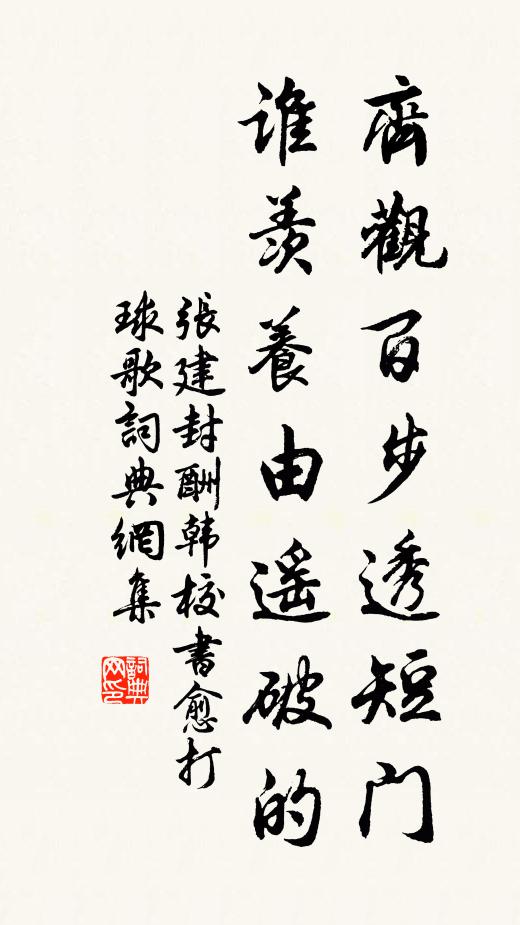 齊觀百步透短門
誰羨養由遥破的
張建封酬韩校書愈打
球歌詞典網集
詞典
网印